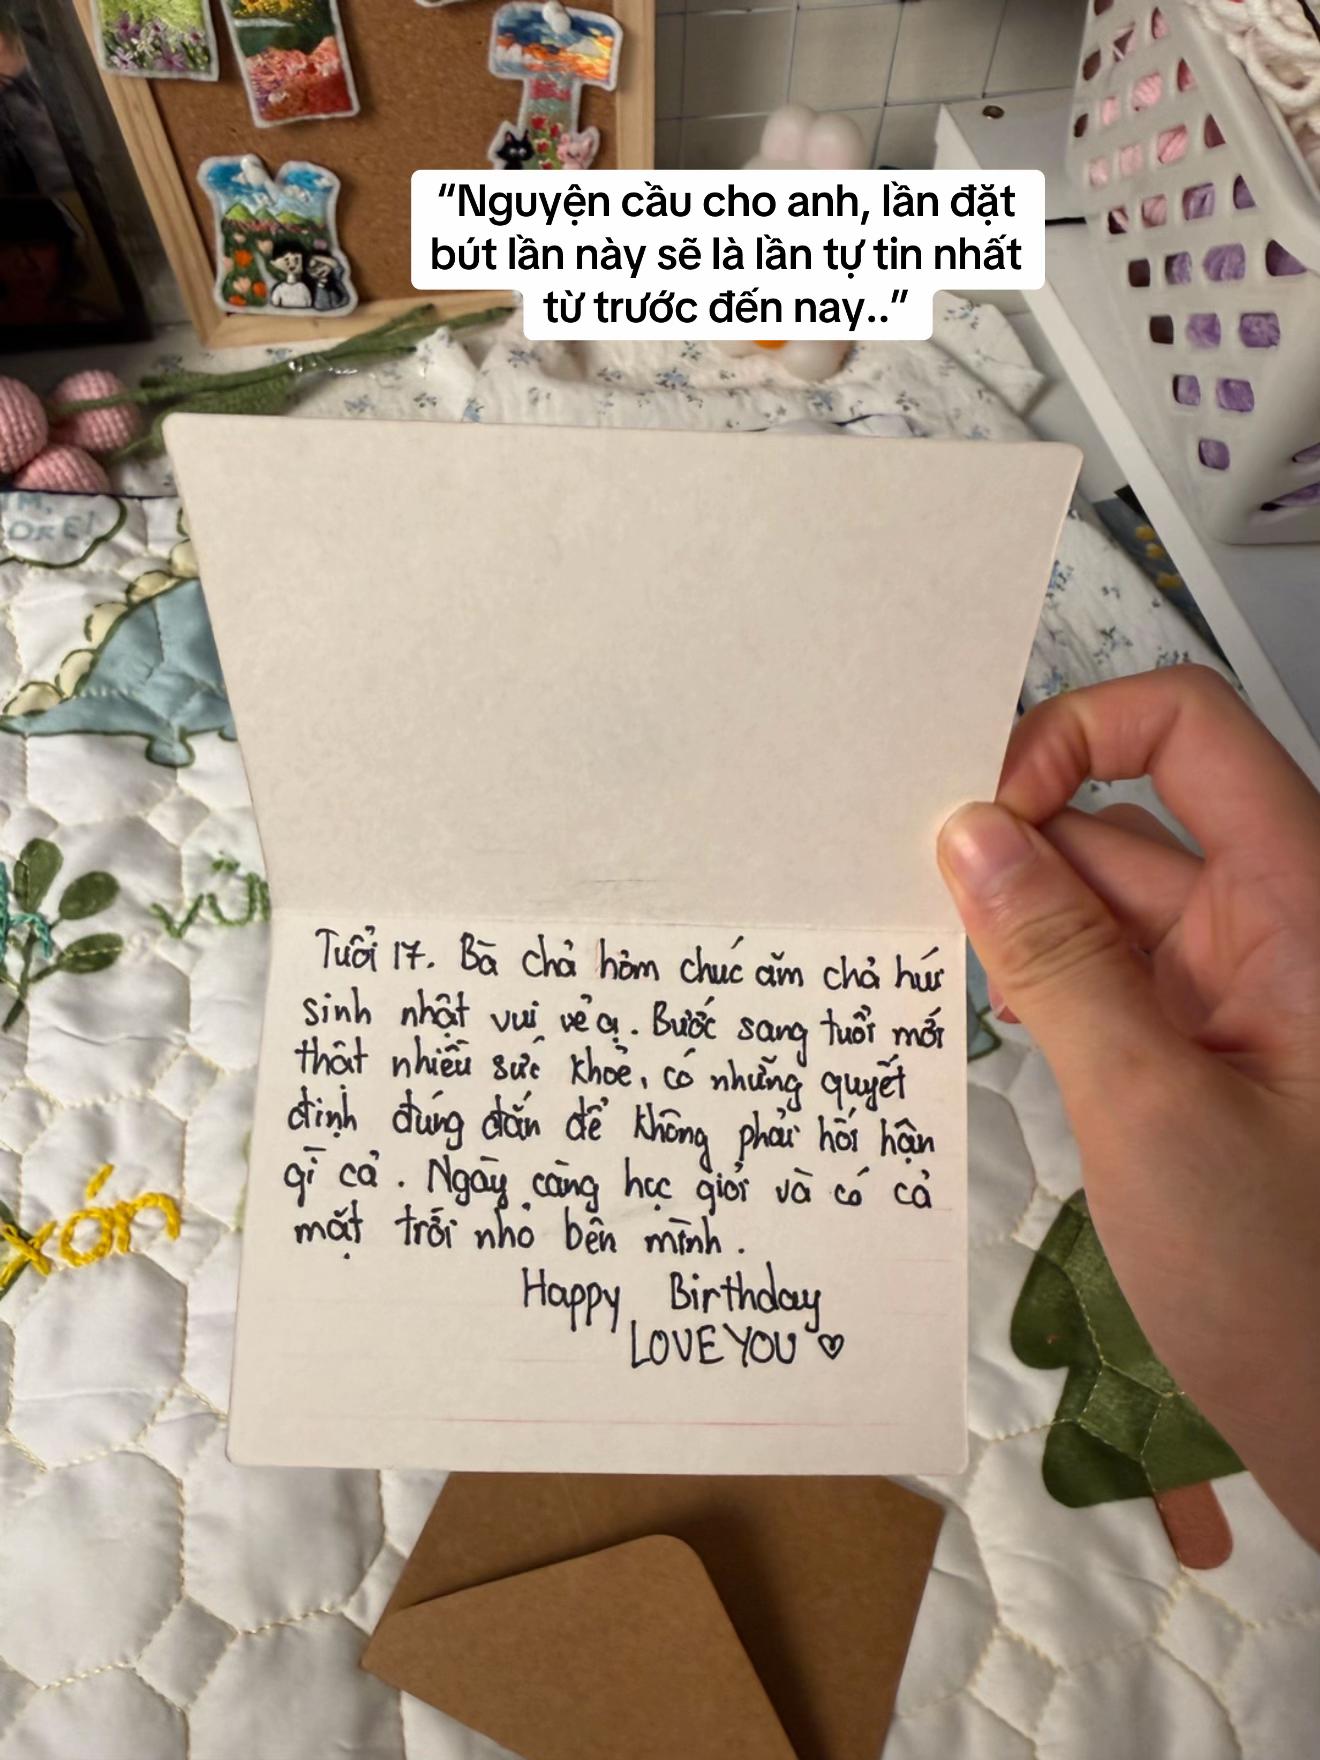 “Nguyện cầu cho anh, lần đặt
bút lần này sẽ là lần tự tin nhất
từ trước đến nay..”
Tuổi 17. Bà chả hỏm chúc ăm chả hứ
sinh nhật vui vẻ ạ. Bước sang tuổi mới
thật nhiều sức khỏe, có những quyết
định đúng đắn để không phải hối hận
gì cả. Ngày càng học giỏi và có cả
mặt trời nhỏ bên mình.
Happy Birthday
LOVE YOU ♡